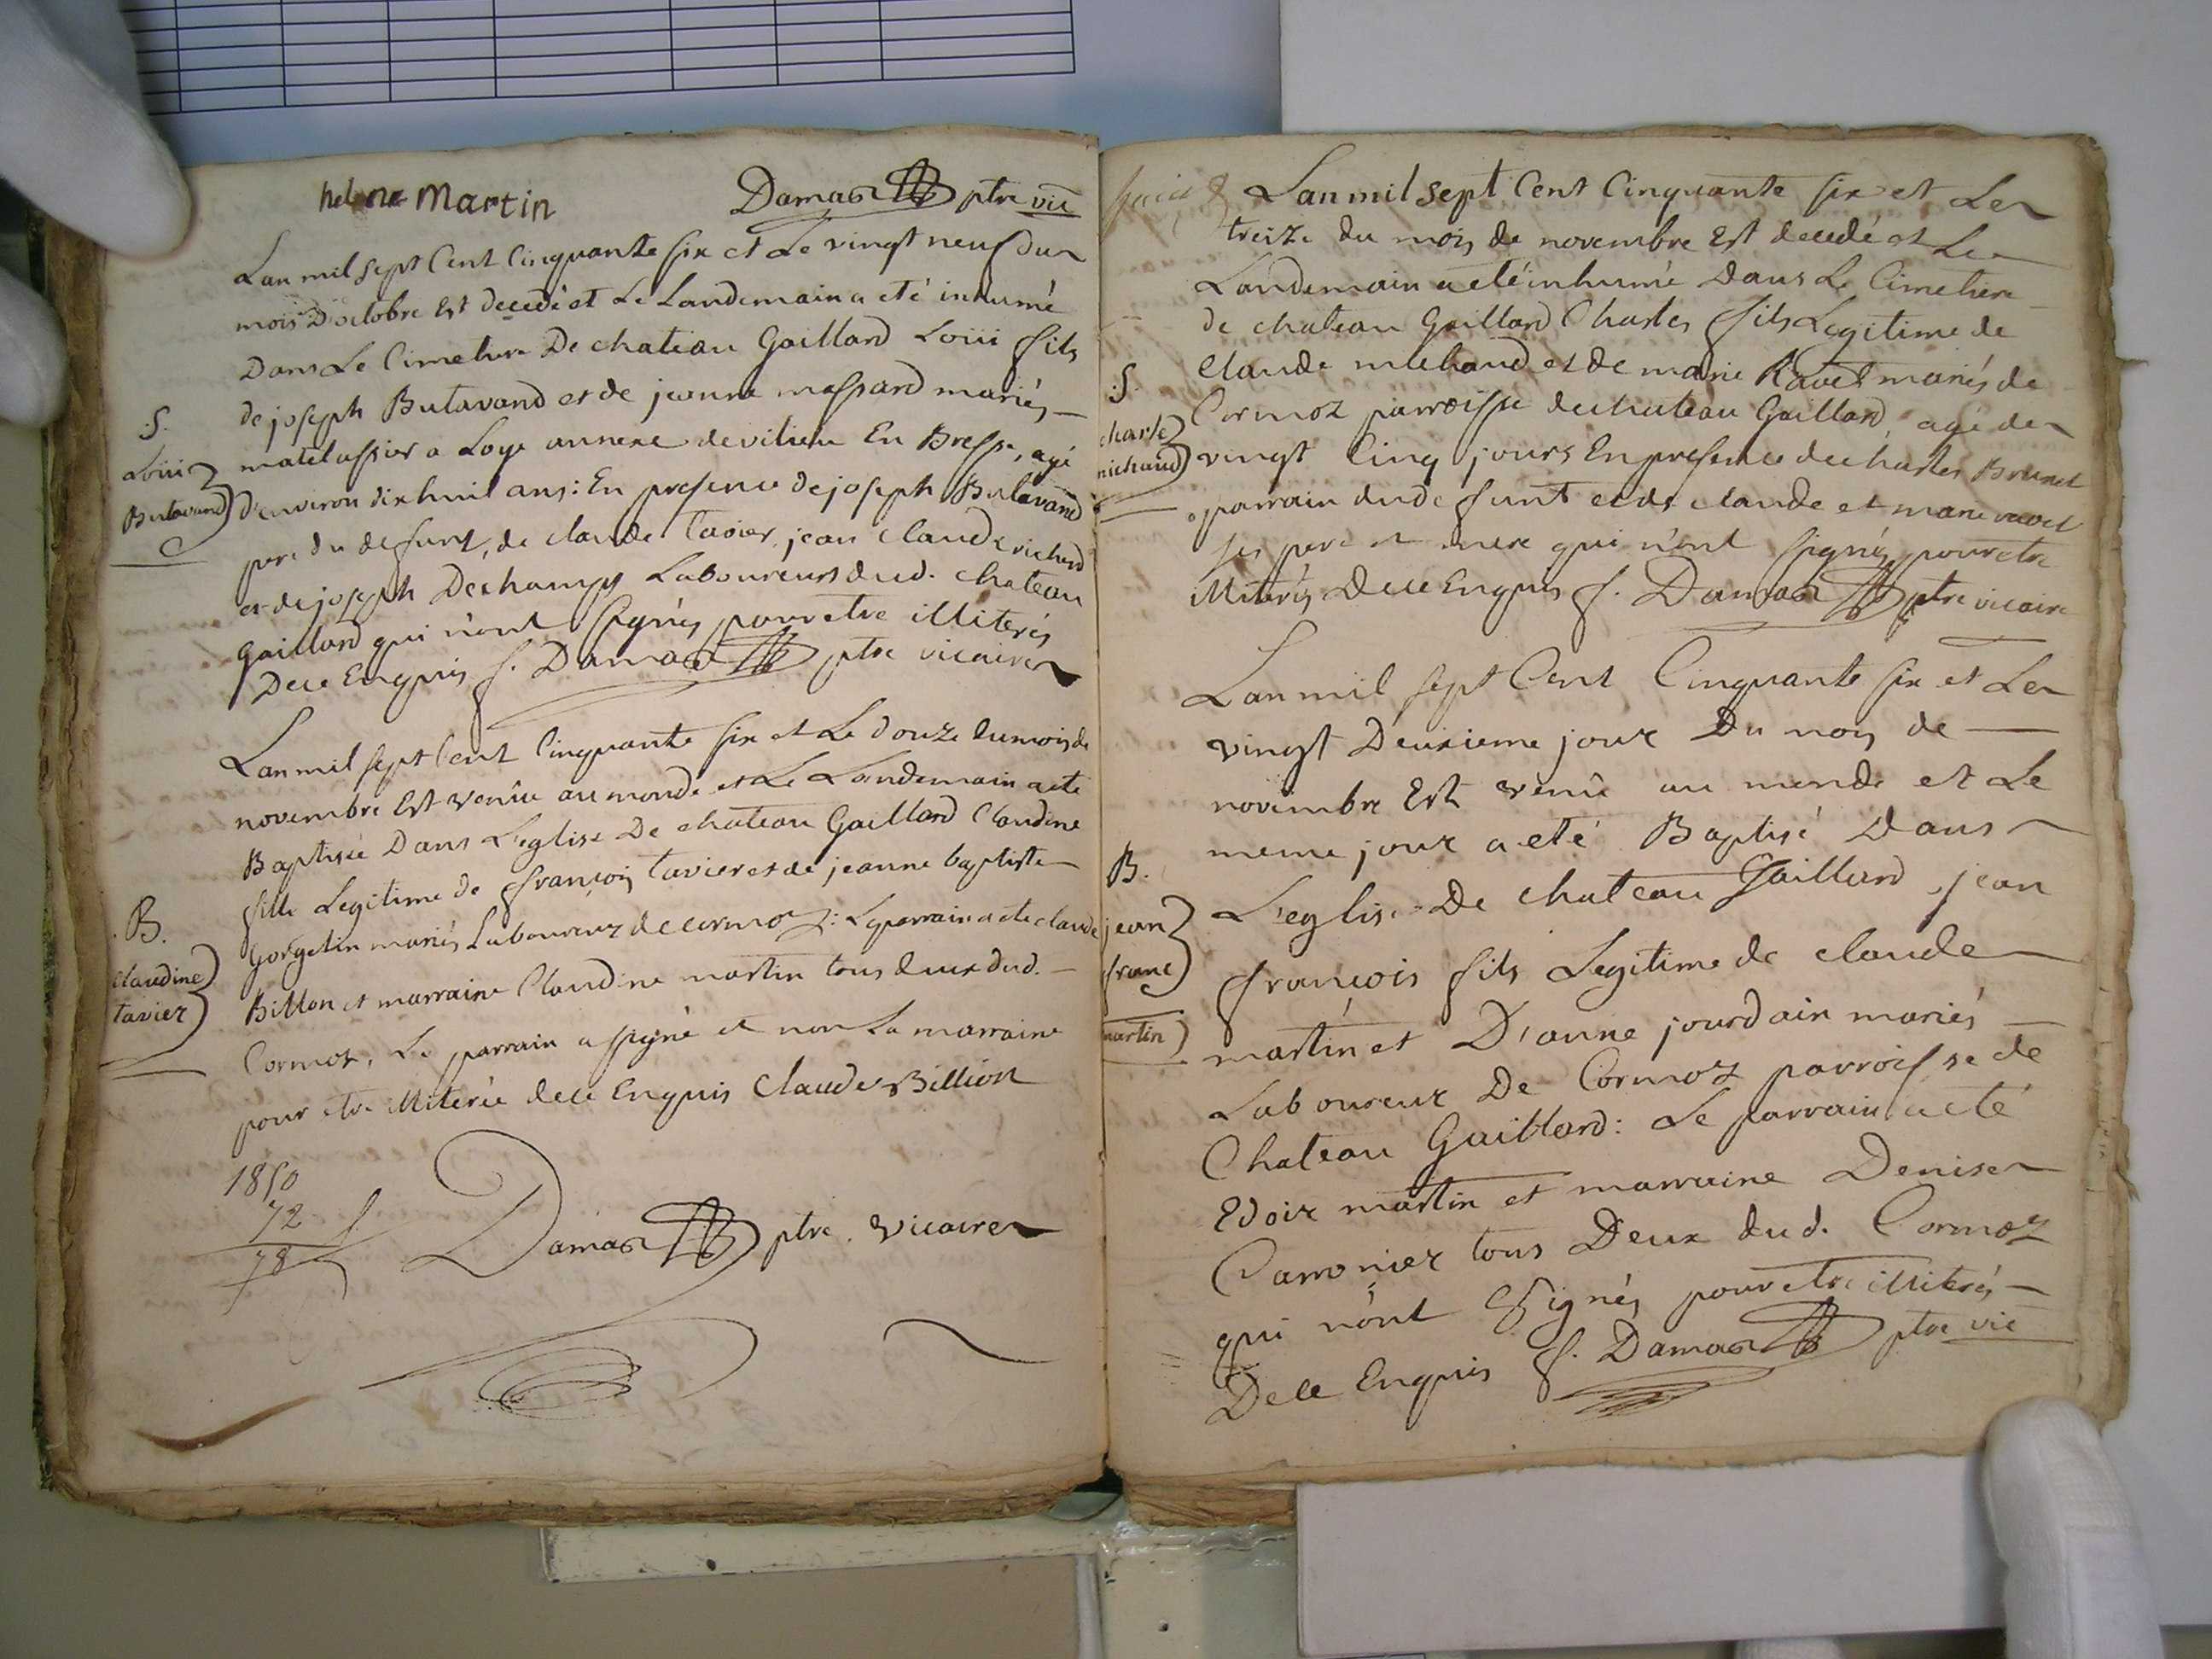 helene Martin Damas ptre vic
Lan mil sept Cent Cinquante six et Le vingt neuf du
mois D'octobre Est decedé et Le Landemain a eté inhumé
Dans Le Cimetiere De chateau Gaillard Loüi fils
de joseph Butavand et de jeanne massard mariés
matelassier a Loye annexe de vilieu En Bresse, agé
D'environ dix huit ans: En presence de joseph Butavand
pere du defunt, de claude tavier, jean claude richard
et de joseph Dechamps Laboureurs dud. chateau
Gaillard qui n'ont signés pour etre illiterés
De ce Enquis f. Damas ptre vicaire
S.
Loüi
Butavand
Lan mil sept Cent Cinquante six et Le douze du mois de
novembre Est venüe au monde et Le Landemain a eté
Baptisée Dans L'eglise De chateau Gaillard Claudine
fille Legitime de françois tavier et de jeanne baptiste
Gorgelin mariés Laboureur de cormoz: Le parrain a eté claude
Billon et marraine Claudine martin tous deux dud.
Cormoz, Le parrain a signé et non La marraine
pour etre illiterée de ce Enquis Claude Billion
B.
claudine
tavier
1850
72
78
Damas ptre. vicaire
Lan mil sept Cent Cinquante six et Le
treize du mois de novembre Est decedé et Le
Landemain a eté inhumé Dans Le Cimetiere
de chateau Gaillard Charles fils Legitime de
Claude michaud et de marie Ravet mariés de
Cormoz parroisse de chateau Gaillard agé de
vingt Cinq jours En presence de charles Brunet
parrain du defunt et de claude et marie ravet
ses pere et mere qui n'ont signés pour etre
illiterés De ce Enquis f. Damas ptre vicaire
S.
charle
michaud
Lan mil sept Cent Cinquante six et Le
vingt Deuxieme jour Du mois de
novembre Est venû au monde et Le
meme jour a eté Baptisé Dans
L'eglise De chateau Gaillard jean
françois fils Legitime de claude
martin et D'anne jourdain mariés
Laboureur De Cormoz parroisse de
Chateau Gaillard: Le parrain a eté
Edoir martin et marraine Denise
Camonier tous Deux dud. Cormoz
qui n'ont signés pour etre illiterés
De ce Enquis f. Damas ptre vic
B.
jean
franc
martin